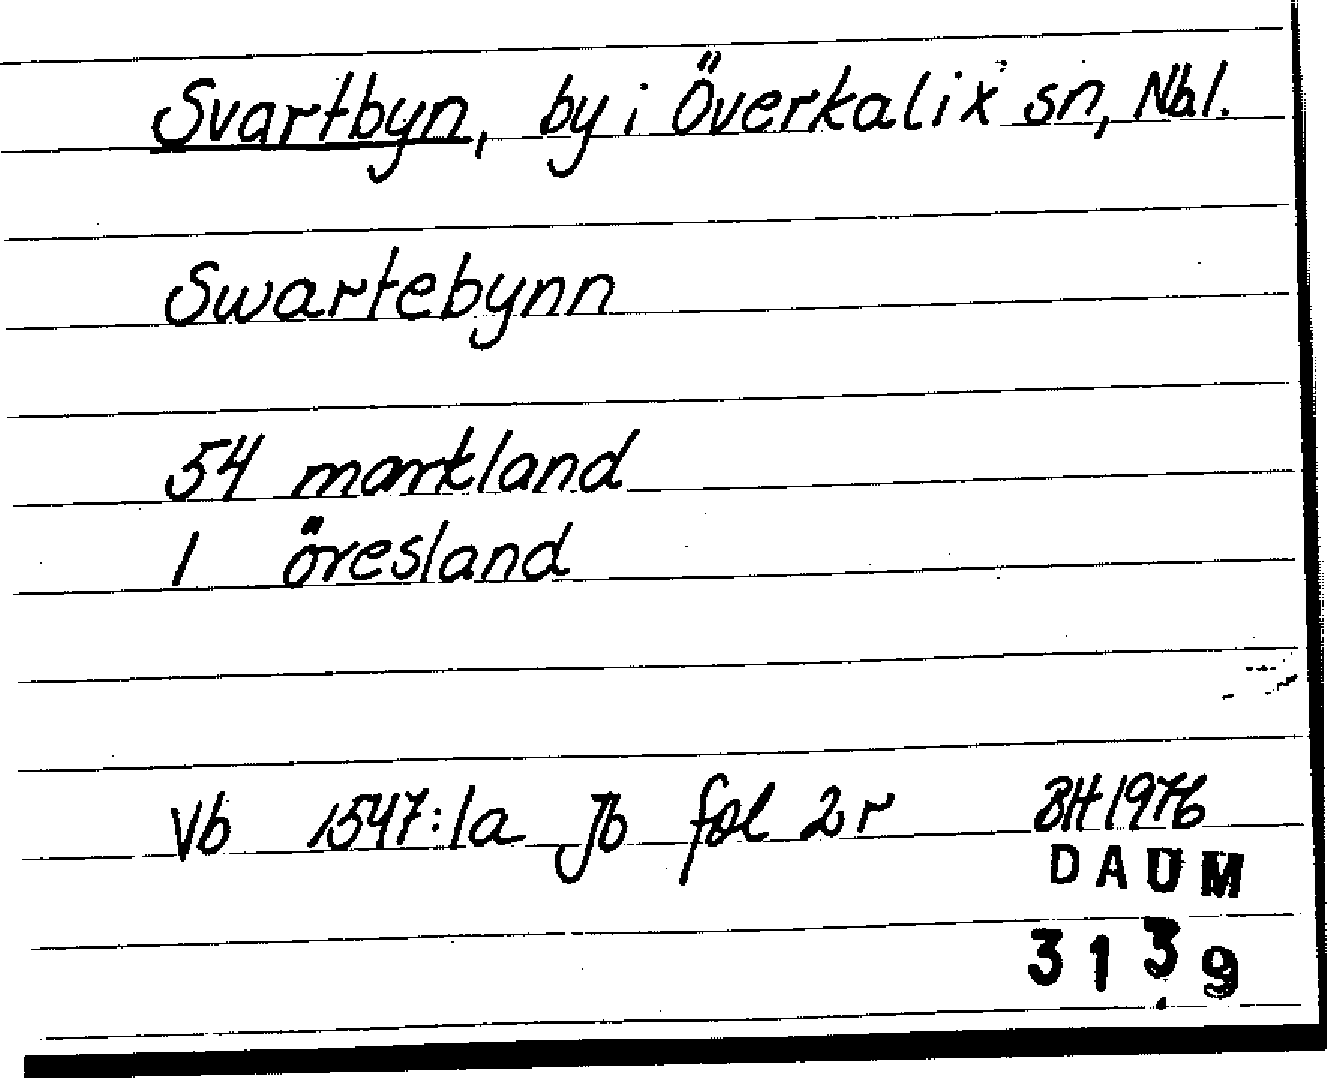 Svartbyn, by i Överkalix sn, Nbl.
Swartebynn
54 markland
1 öresland
Vb 1547:1a Jb fol 2r BH 1976
DAUM
3139